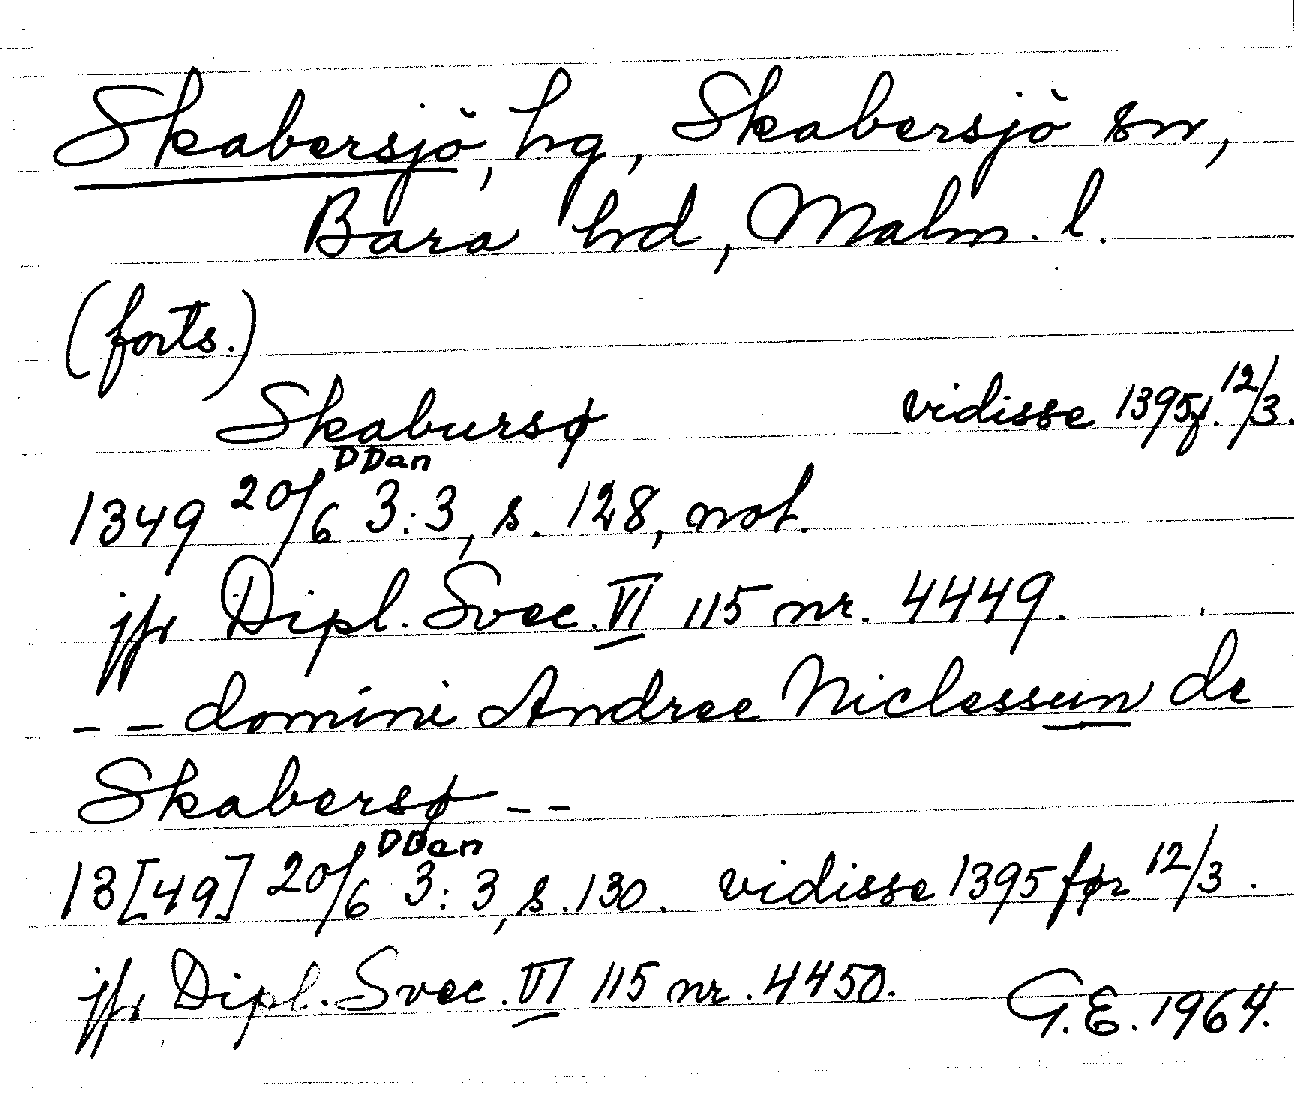 Skabersjö, hg, Skabersjö sn,
Bara hd, Malm. l.
(forts.)
Skabursø vidisse 1395 f. 12/3.
1349 20/6 DDan 3:3, s. 128, not.
jfr Dipl. Svec. VI 115 nr. 4449.
-- domini Andree Niclessun de
Skabersø --
13[49] 20/6 DDan 3:3, s. 130. vidisse 1395 før 12/3.
jfr Dipl. Svec. VI 115 nr. 4450.
G.E. 1964.